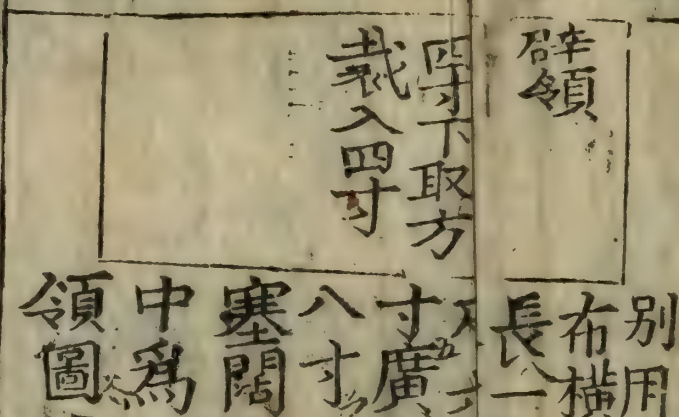 辟領
四寸下取方
裁入四寸
別用
布橫
長一
寸廣
八寸
塞闊
中爲
領圖